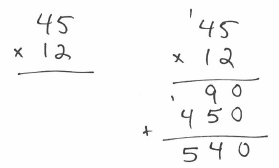 45
× 12
1
45
× 12
90
1
450
+
540